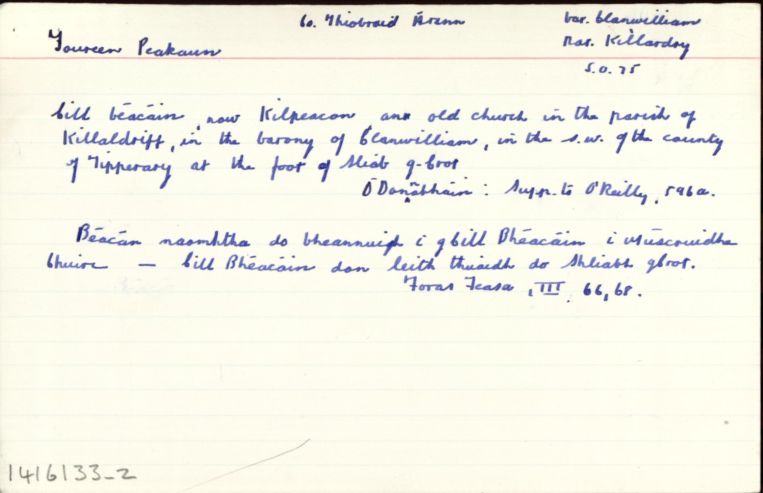 Co. Thiobraid Árann
bar. Clanwilliam
Toureen Peakaun
par. Killardry
S.O. 75
Cill béacáin, now Kilpeacon, an old church in the parish of
Killaldriff, in the barony of Clanwilliam, in the s.w. of the county
of Tipperary at the foot of Sliab g-Crot
O'Donabháin: Supp. to O'Reilly, 596a.
Béacán naomhtha do bheannuigh i gCill Bhéacáin i Múscruidhe
Chuirc — Cill Bhéacáin don leith thuaidh do Shliabh gCrot.
Foras Feasa, III, 66, 68.
1416133-2